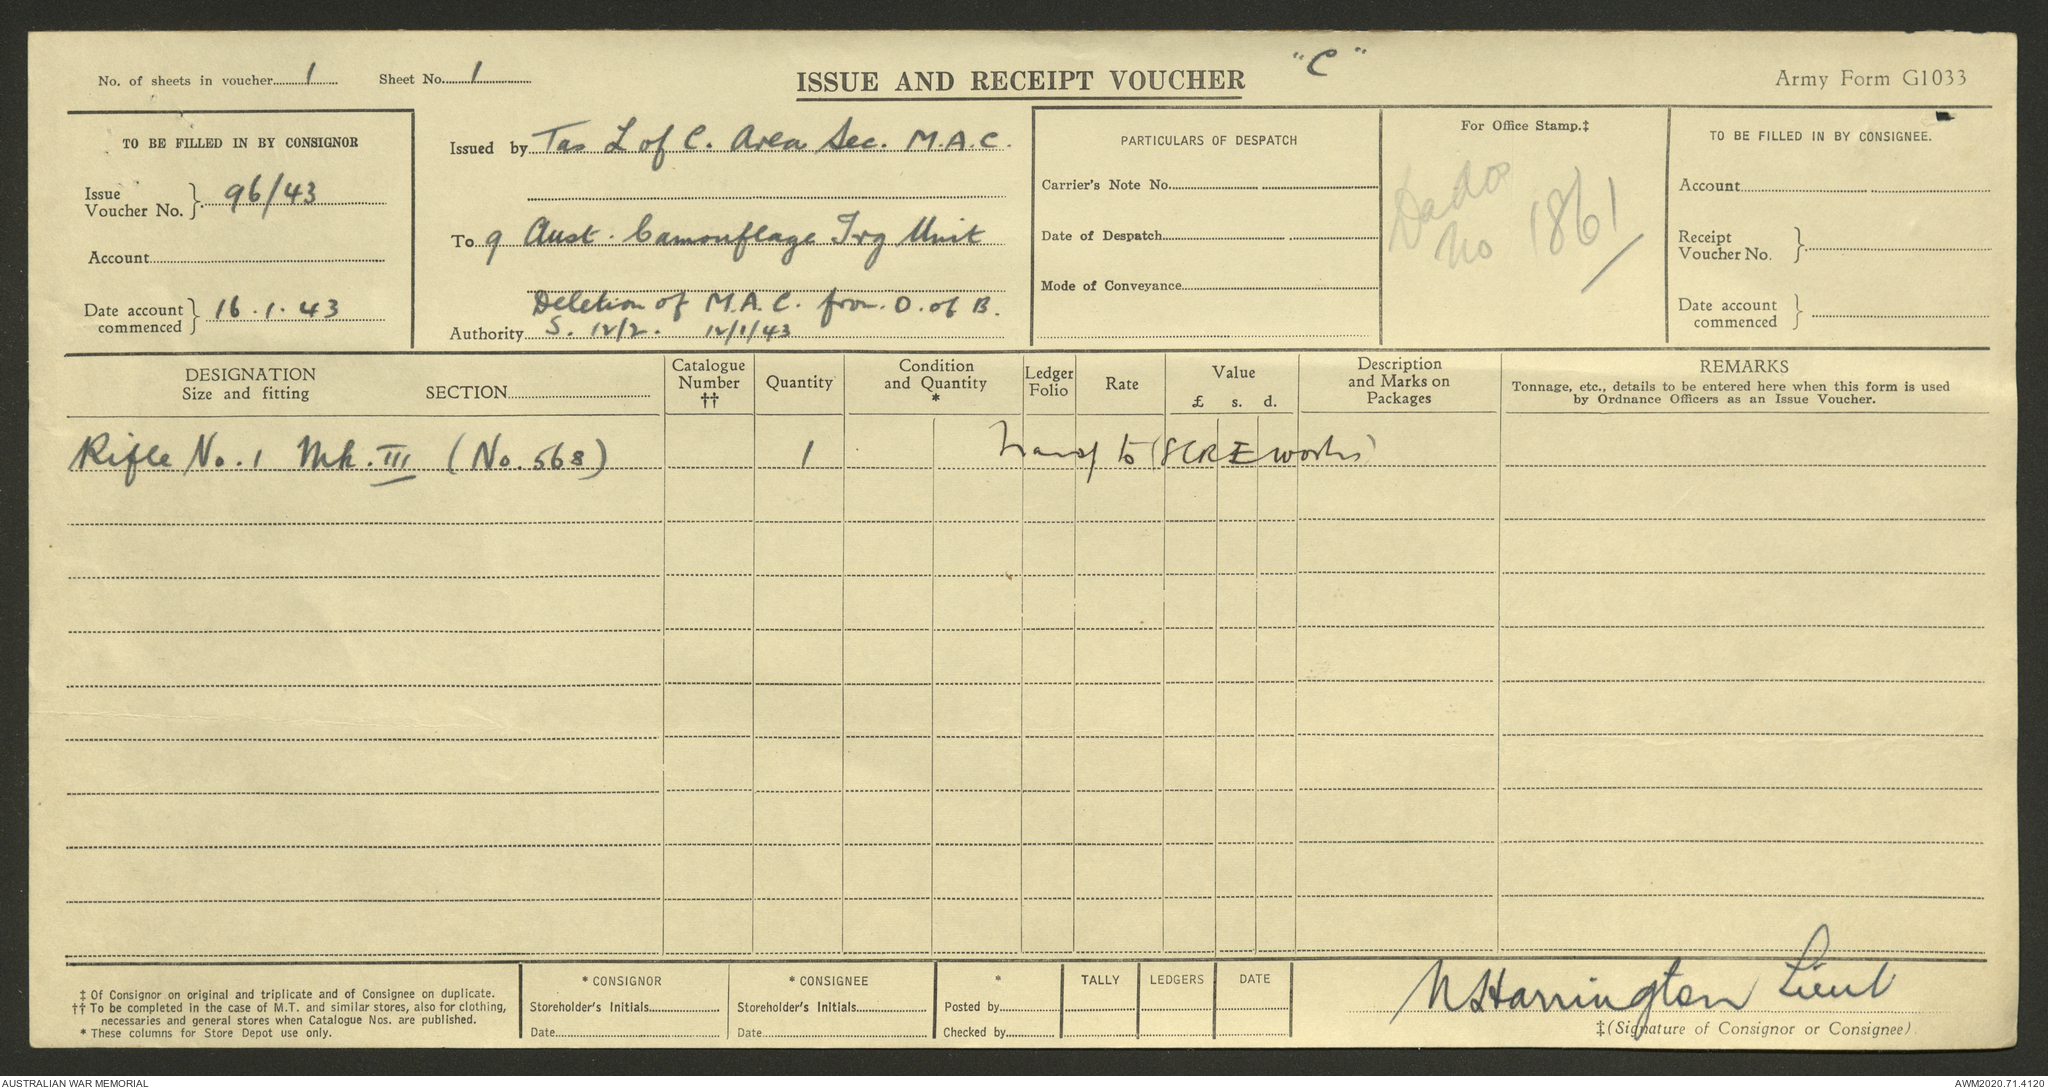 No. of sheets in voucher 1 Sheet No. 1
ISSUE AND RECEIPT VOUCHER
"C"
Army Form G1033
TO BE FILLED IN BY CONSIGNOR
Issue Voucher No. } 96/43
Account
Date account commenced } 16.1.43
Issued by Tas L of C. Area Sec. M.A.C.
To 9 Aust. Camouflage Trg Unit
Deletion of M.A.C. from O. of B.
Authority S. 12/2. 12/1/43
PARTICULARS OF DESPATCH
Carrier's Note No.
Date of Despatch
Mode of Conveyance
For Office Stamp.‡
Dados
No 1861
TO BE FILLED IN BY CONSIGNEE.
Account
Receipt Voucher No. }
Date account commenced }
DESIGNATION
Size and fitting SECTION
Catalogue Number ††
Quantity
Condition and Quantity *
Ledger Folio
Rate
Value £ s. d.
Description and Marks on Packages
REMARKS
Tonnage, etc., details to be entered here when this form is used
by Ordnance Officers as an Issue Voucher.
Rifle No. 1 Mk. III (No. 568) 1 to (8CRE works)
‡ Of Consignor on original and triplicate and of Consignee on duplicate.
†† To be completed in the case of M.T. and similar stores, also for clothing,
necessaries and general stores when Catalogue Nos. are published.
* These columns for Store Depot use only.
* CONSIGNOR
Storeholder's Initials
Date
* CONSIGNEE
Storeholder's Initials
Date
*
Posted by
Checked by
TALLY
LEDGERS
DATE
Harrington Lieut
‡(Signature of Consignor or Consignee)
AUSTRALIAN WAR MEMORIAL
AWM2020.71.4120